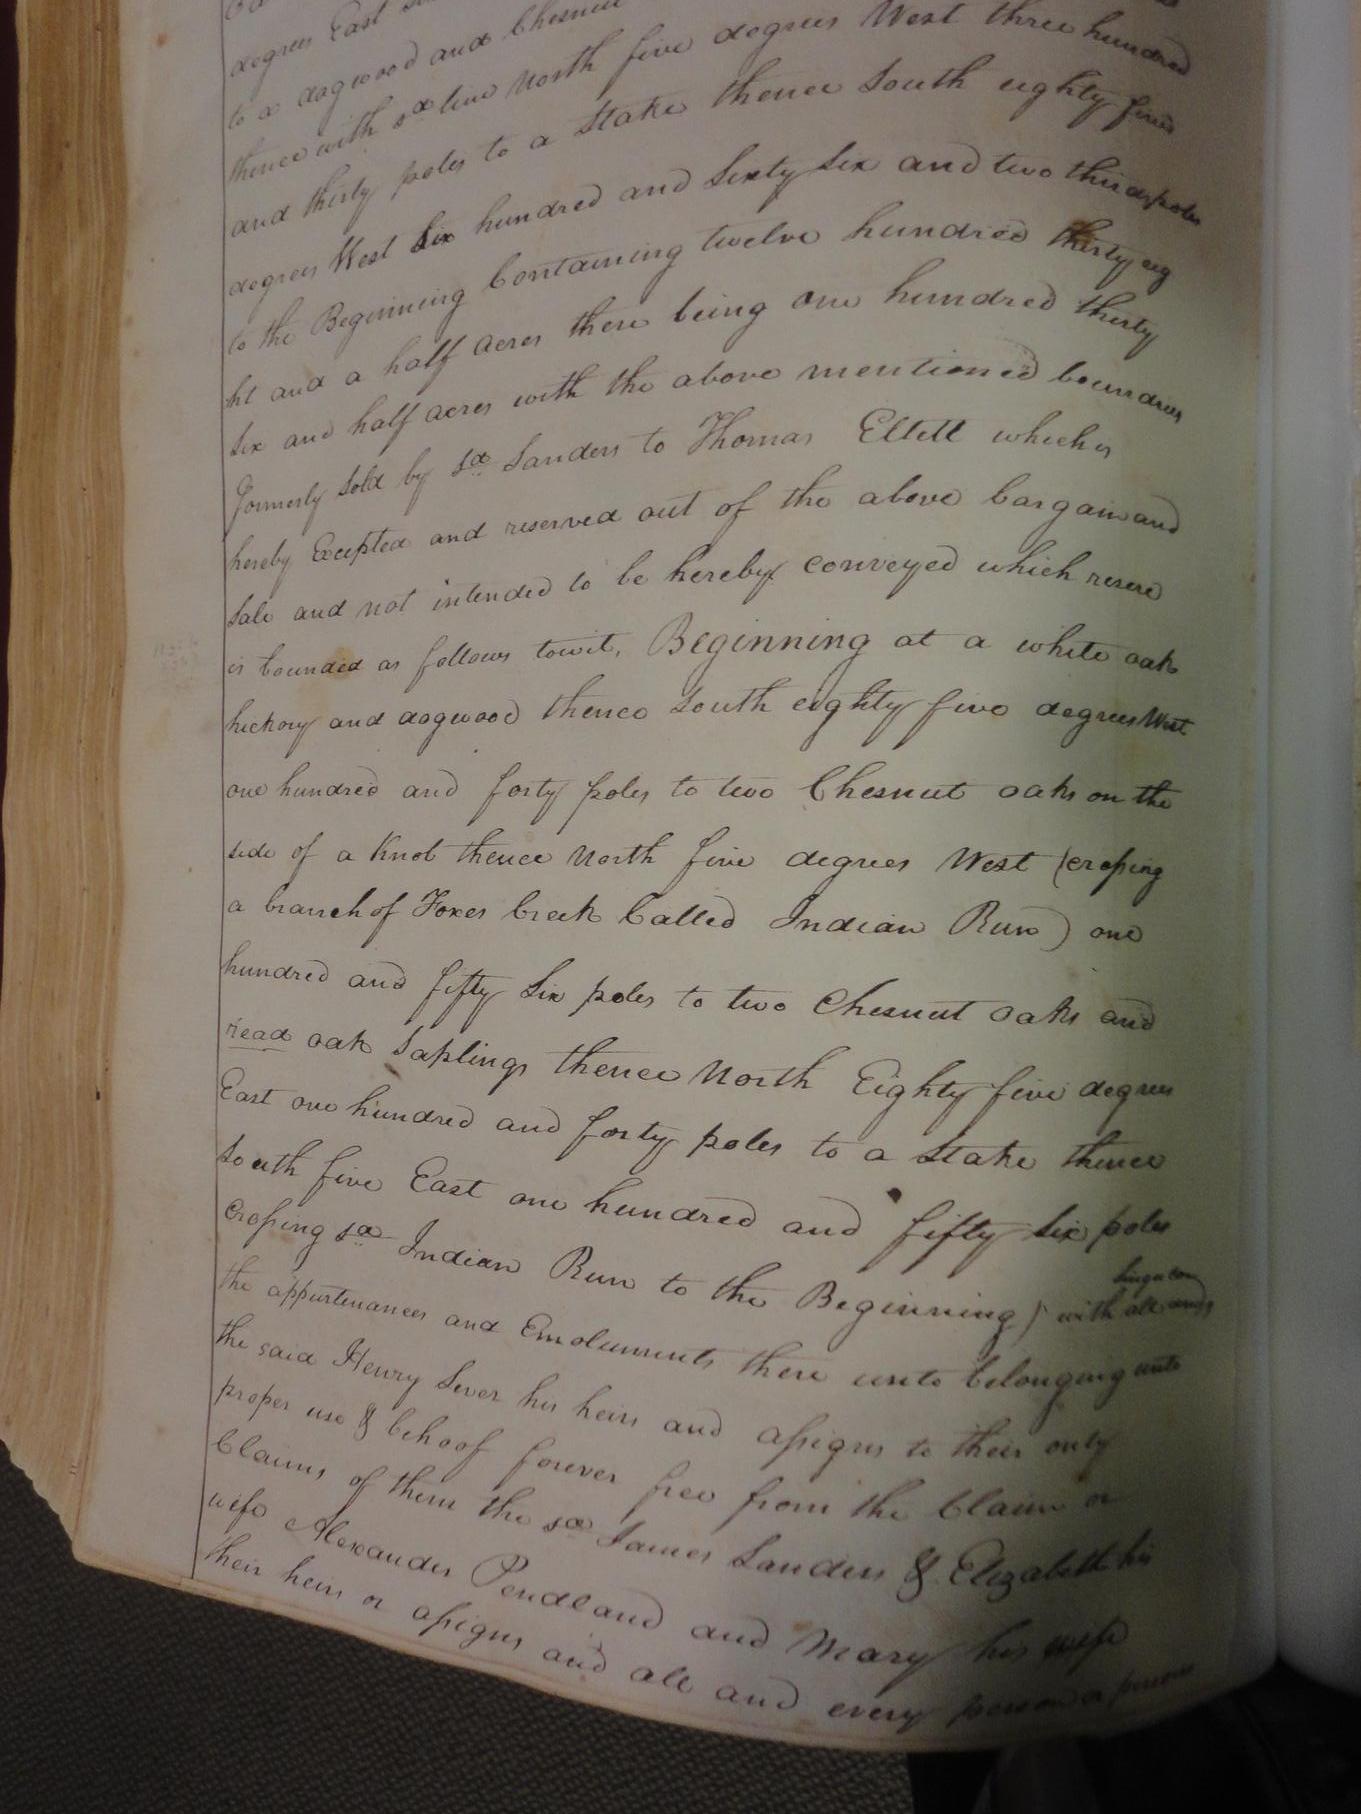 degrees East
to a dogwood and Chesnut
thence with sd line North five degrees West three hundred
and thirty poles to a Stake thence South eighty five
degrees West Six hundred and Sixty Six and two thirds poles
to the Beginning Containing twelve hundred thirty eig
ht and a half acres there being one hundred thirty
Six and half acres with the above mentioned boundries
formerly Sold by sd Sanders to Thomas Ellett which is
hereby Excepted and reserved out of the above bargain and
Sale and not intended to be hereby conveyed which reserve
is bounded as follows towit, Beginning at a white oak
hickory and dogwood thence South eighty five degrees West
one hundred and forty poles to two Chesnut oaks on the
side of a Knob thence North five degrees West (crossing
a branch of Foxes Creek Called Indian Run) one
hundred and fifty Six poles to two Chesnut oaks and
read oak Saplings thence North Eighty five degrees
East one hundred and forty poles to a Stake thence
South five East one hundred and fifty Six poles
Crossing sd Indian Run to the Beginning) with all and Singular
the appurtenances and Emoluments there unto belonging unto
the said Henry Sever his heirs and assigns to their only
proper use & behoof forever free from the Claim or
Claims of them the sd James Sanders & Elizabeth his
wife Alexander Pendland and Mary his wife
their heirs or assigns and all and every person or persons